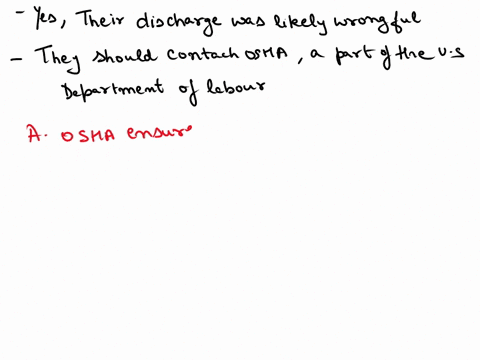 - Yes, Their discharge was likely wrongful
- They should contach OSHA, a part of the U.S
Department of labour
A. OSHA ensure